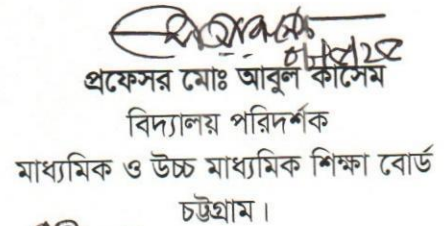 প্রফেসর মোঃ আবুল কাসেম
বিদ্যালয় পরিদর্শক
মাধ্যমিক ও উচ্চ মাধ্যমিক শিক্ষা বোর্ড
চট্টগ্রাম।